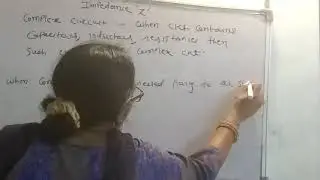 Impedance Z:
Complex circuit - When ckt contains
Capacitors, inductors, resistances then
Such complex ckt.
When con to an